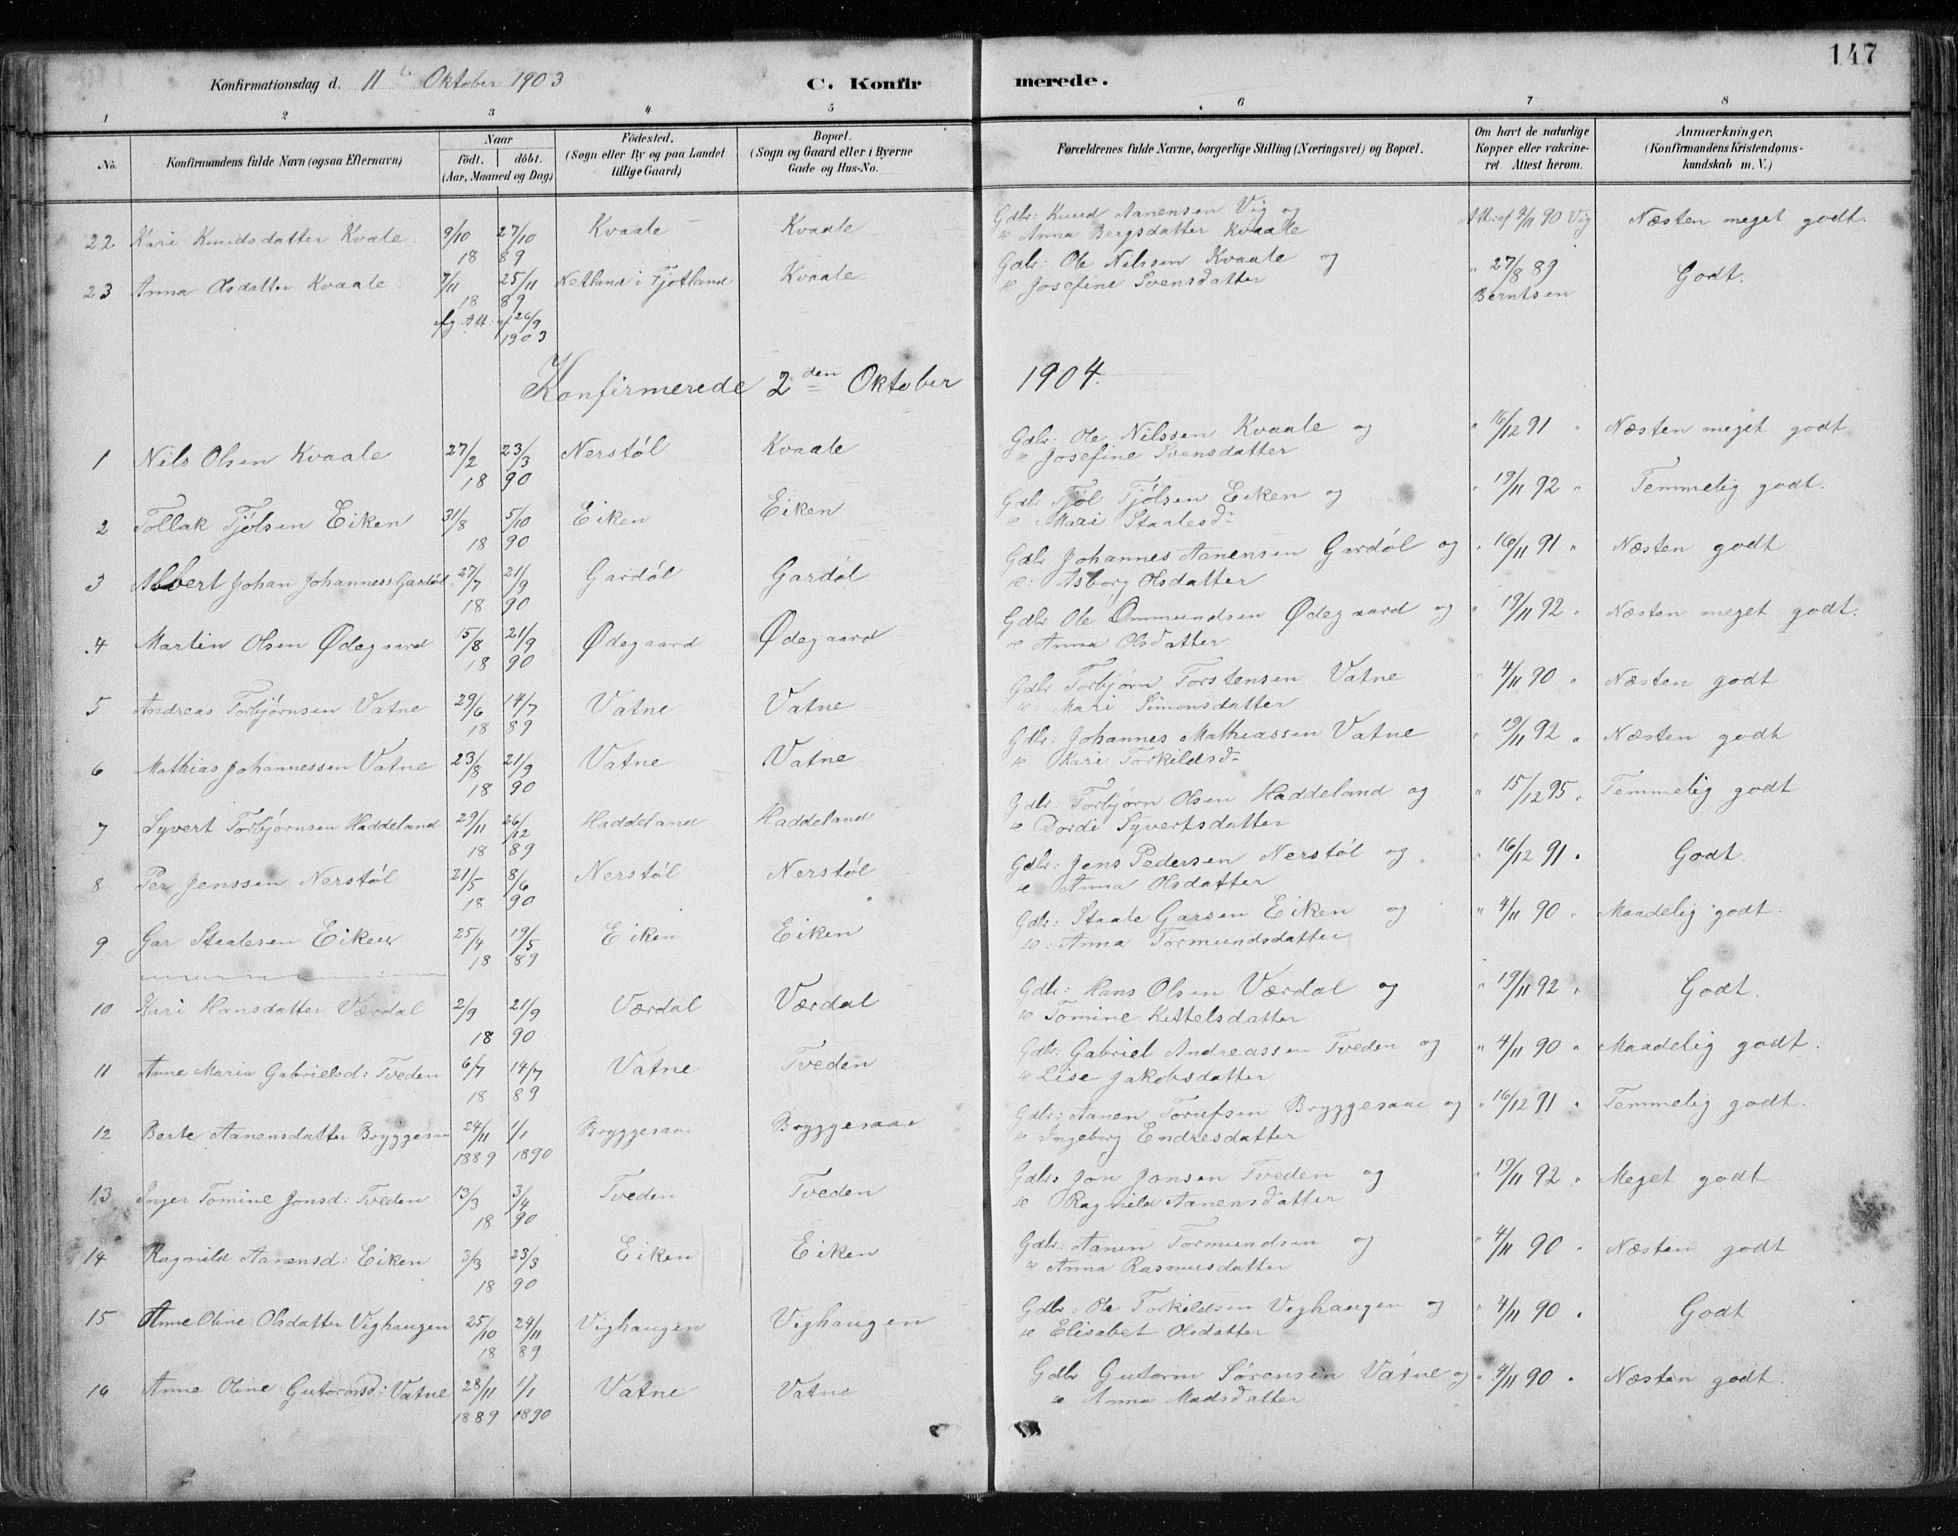 147
Konfirmationsdag d. 11te Oktober 1903 C. Konfirmerede.
1 2 3 4 5 6 7 8
No. Konfirmandens fulde Navn (ogsaa Efternavn) Naar födt. döbt. (Aar, Maaned og Dag) Födested. (Sogn eller By og paa Landet tillige Gaard) Bopæl. (Sogn og Gaard eller i Byerne Gade og Hus-No. Forældrenes fulde Navne, borgerlige Stilling (Næringsvei) og Bopæl. Om havt de naturlige Kopper eller vakcineret. Attest herom. Anmærkninger. (Konfirmandens Kristendomskundskab m. V.)
22 Kari Knudsdatter Kvale 9/10 27/10 Kvaale Kvaale Gdbr: Knud Aanensen Vig og Att: af 4/11 90 Vig Næsten meget godt.
18 89 Anna Bergsdatter Kvaale
23 Anna Olsdatter Kvaale 7/11 25/11 Netland i Fjotland Kvaale Gdbr: Ole Nilssen Kvaale og " 27/8 89 Godt.
18 89 Josefine Svensdatter Berntsen
ifg Att: af 26/9
1903
Konfirmerede 2den Oktober 1904.
1 Nils Olsen Kvaale 27/2 23/3 Nerstöl Kvaale Gdbr: Ole Nilssen Kvaale og " 16/12 91 " Næsten meget godt
18 90 Josefine Svensdatter
2 Tollak Tjölsen Eiken 31/8 5/10 Eiken Eiken Gdbr Tjöl Tjölsen Eiken og " 19/11 92 " Temmelig godt.
18 90 Mari Staalesd:
3 Albert Johan Johanness Gardöl 27/7 21/9 Gardöl Gardöl Gdbr Johannes Aanensen Gardöl og " 16/11 91 " Næsten godt
18 90 Asborg Olsdatter
4 Martin Olsen Ødegaard 15/8 21/9 Ødegaard Ødegaard Gdbr Ole Ommundsen Ødegaard og " 19/11 92 " Næsten meget godt.
18 90 Anna Olsdatter
5 Andreas Torbjörnsen Vatne 29/6 14/7 Vatne Vatne Gdbr Torbjörn Torstensen Vatne " 4/11 90 " Næsten godt
18 89 Mari Simonsdatter
6 Mathias Johannessen Vatne 23/8 21/9 Vatne Vatne Gdbr: Johannes Mathiassen Vatne " 19/11 92 " Næsten godt
18 90 Kari Torkildsd:
7 Syvert Torbjørnsen Haddeland 29/11 26/12 Haddeland Haddeland Gdbr: Torbjørn Olsen Haddeland og " 15/12 95 " Temmelig godt
18 89 Dordi Syvertsdatter
8 Per Jenssen Nerstöl 21/5 8/6 Nerstöl Nerstöl Gdbr: Jens Pedersen Nerstöl og " 16/12 91 " Godt.
18 90 Anna Olsdatter
9 Gar Staalesen Eiken 25/4 19/5 Eiken Eiken Gdbr: Staale Garsen Eiken og " 4/11 90 " Maadelig godt.
18 89 Anna Tormundsdatter
10 Kari Hansdatter Værdal 2/9 21/9 Værdal Værdal Gdbr: Hans Olsen Værdal og " 19/11 92 " Godt.
18 90 Tomine Kittelsdatter
11 Anne Maria Gabrielsd: Tveden 6/7 14/7 Vatne Tveden Gdbr: Gabriel Andreassen Tveden og " 4/11 90 " Maadelig godt.
18 89 Lise Jakobsdatter
12 Berte Aanensdatter Bryggesaa 24/11 1/1 Bryggesaae Bryggesaae Gdbr: Aanen Torufsen Bryggesaae og " 16/12 91 " Temmelig godt.
1889 1890 Ingeborg Endresdatter
13 Inger Tomine Jonsd: Tveden 13/3 3/4 Tveden Tveden Gdbr Jon Jonsen Tveden og " 19/11 92 " Meget godt
18 90 Ragnild Aanensdatter
14 Ragnild Aanensd: Eiken 3/3 23/3 Eiken Eiken Gdbr: Aanen Tormundsen og " 4/11 90 " Næsten godt
18 90 Anna Rasmusdatter
15 Anne Oline Olsdatter Vighaugen 25/10 24/11 Vighaugen Vighaugen Gdbr: Ole Torkildsen Vighaugen og " 4/11 90 " Godt
18 89 Elisabet Olsdatter
16 Anne Oline Gutormsd: Vatne 28/11 1/1 Vatne Vatne Gdbr Gutorm Sørensen Vatne og " 4/11 90 " Næsten godt.
1889 1890 Anna Madsdatter